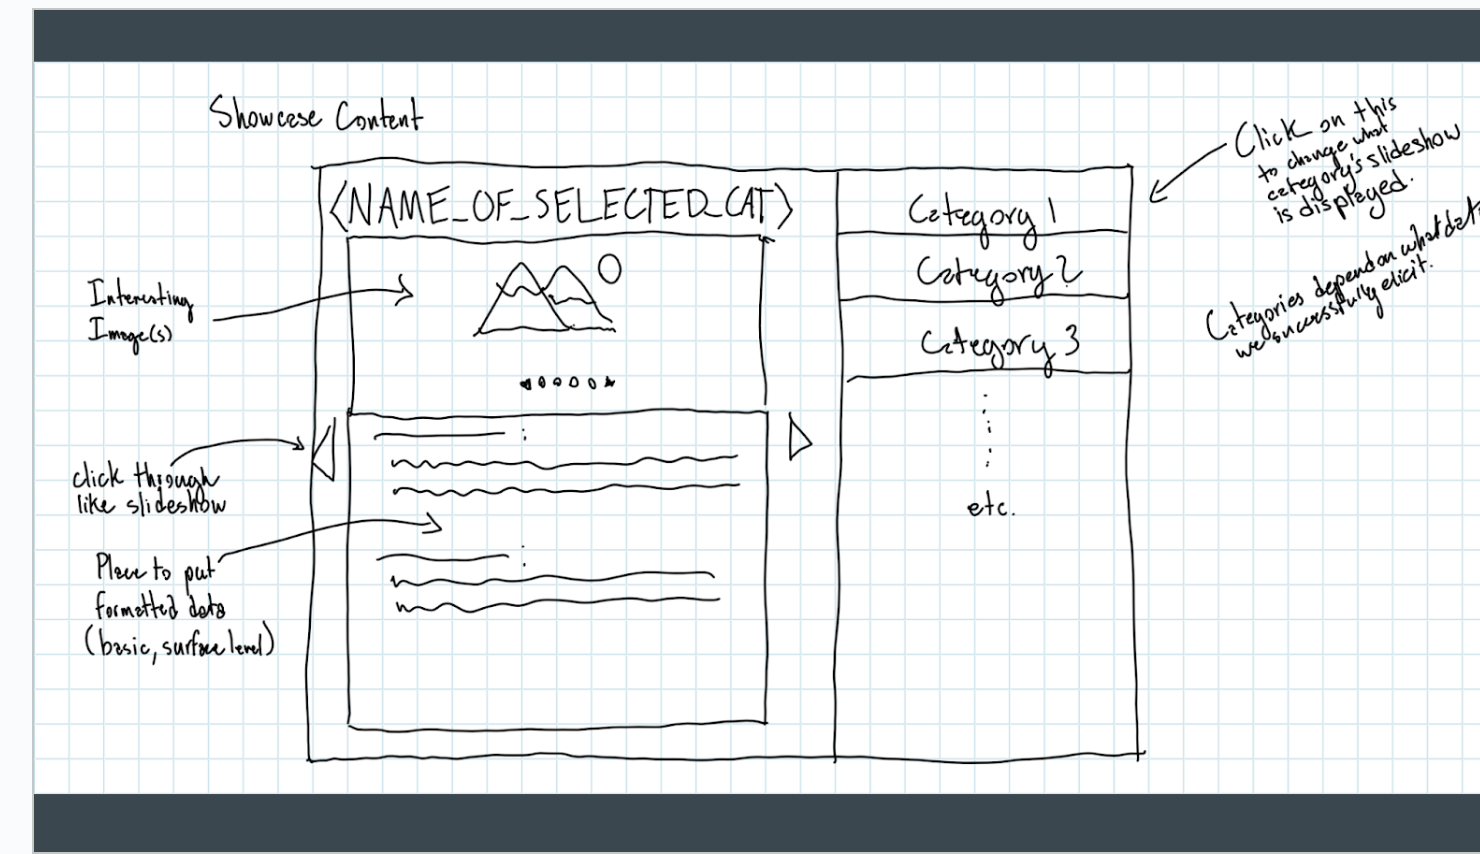 Showcase Content
<NAME_OF_SELECTED_CAT>
Interesting
Image(s)
click through
like slideshow
Place to put
formatted data
(basic, surface level)
Category 1
Category 2
Category 3
etc.
Click on this
to change what
category's slideshow
is displayed.
Categories depend on what data
we successfully elicit.